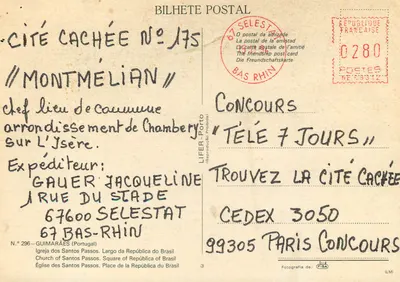 BILHETE POSTAL
CITÉ CACHEE Nº 175
"MONTMÉLIAN"
chef lieu de commune
arrondissement de Chambery
sur L'Isère.
Expéditeur:
GAUER JACQUELINE
1 RUE DU STADE
67600 SELESTAT
67 BAS-RHIN
N.º 296 - GUIMARÃES (Portugal)
Igreja dos Santos Passos. Largo da República do Brasil
Church of Santos Passos. Square of República of Brasil
Église des Santos Passos. Place de la República do Brasil
LIFER-Porto
O postal da amizade
La postal de la amistad
La carte postale de l'amitié
The friendship post card
Die Freundschaftskarte
67 SELESTAT
BAS RHIN
RÉPUBLIQUE
FRANÇAISE
0280
POSTES
CONCOURS
"TÉLÉ 7 JOURS"
TROUVEZ LA CITÉ CACHÉE
CEDEX 3050
99305 PARIS CONCOURS
Fotografia de: